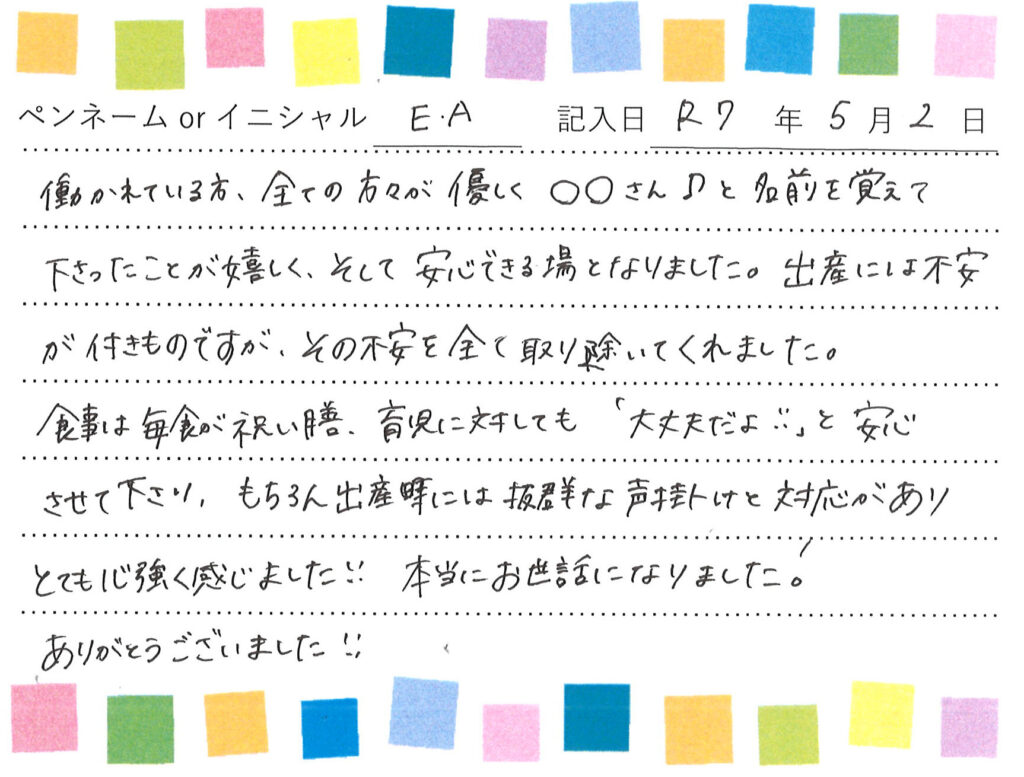 ペンネーム or イニシャル E.A 記入日 R7 年 5 月 2 日
働かれている方、全ての方々が優しく 〇〇さん♪と名前を覚えて
下さったことが嬉しく、そして安心できる場となりました。出産には不安
が付きものですが、その不安を全て取り除いてくれました。
食事は毎食が祝い膳、育児に対しても「大丈夫だよ!!」と安心
させて下さり、もちろん出産時には抜群な声掛けと対応があり
とても心強く感じました!! 本当にお世話になりました!
ありがとうございました!!